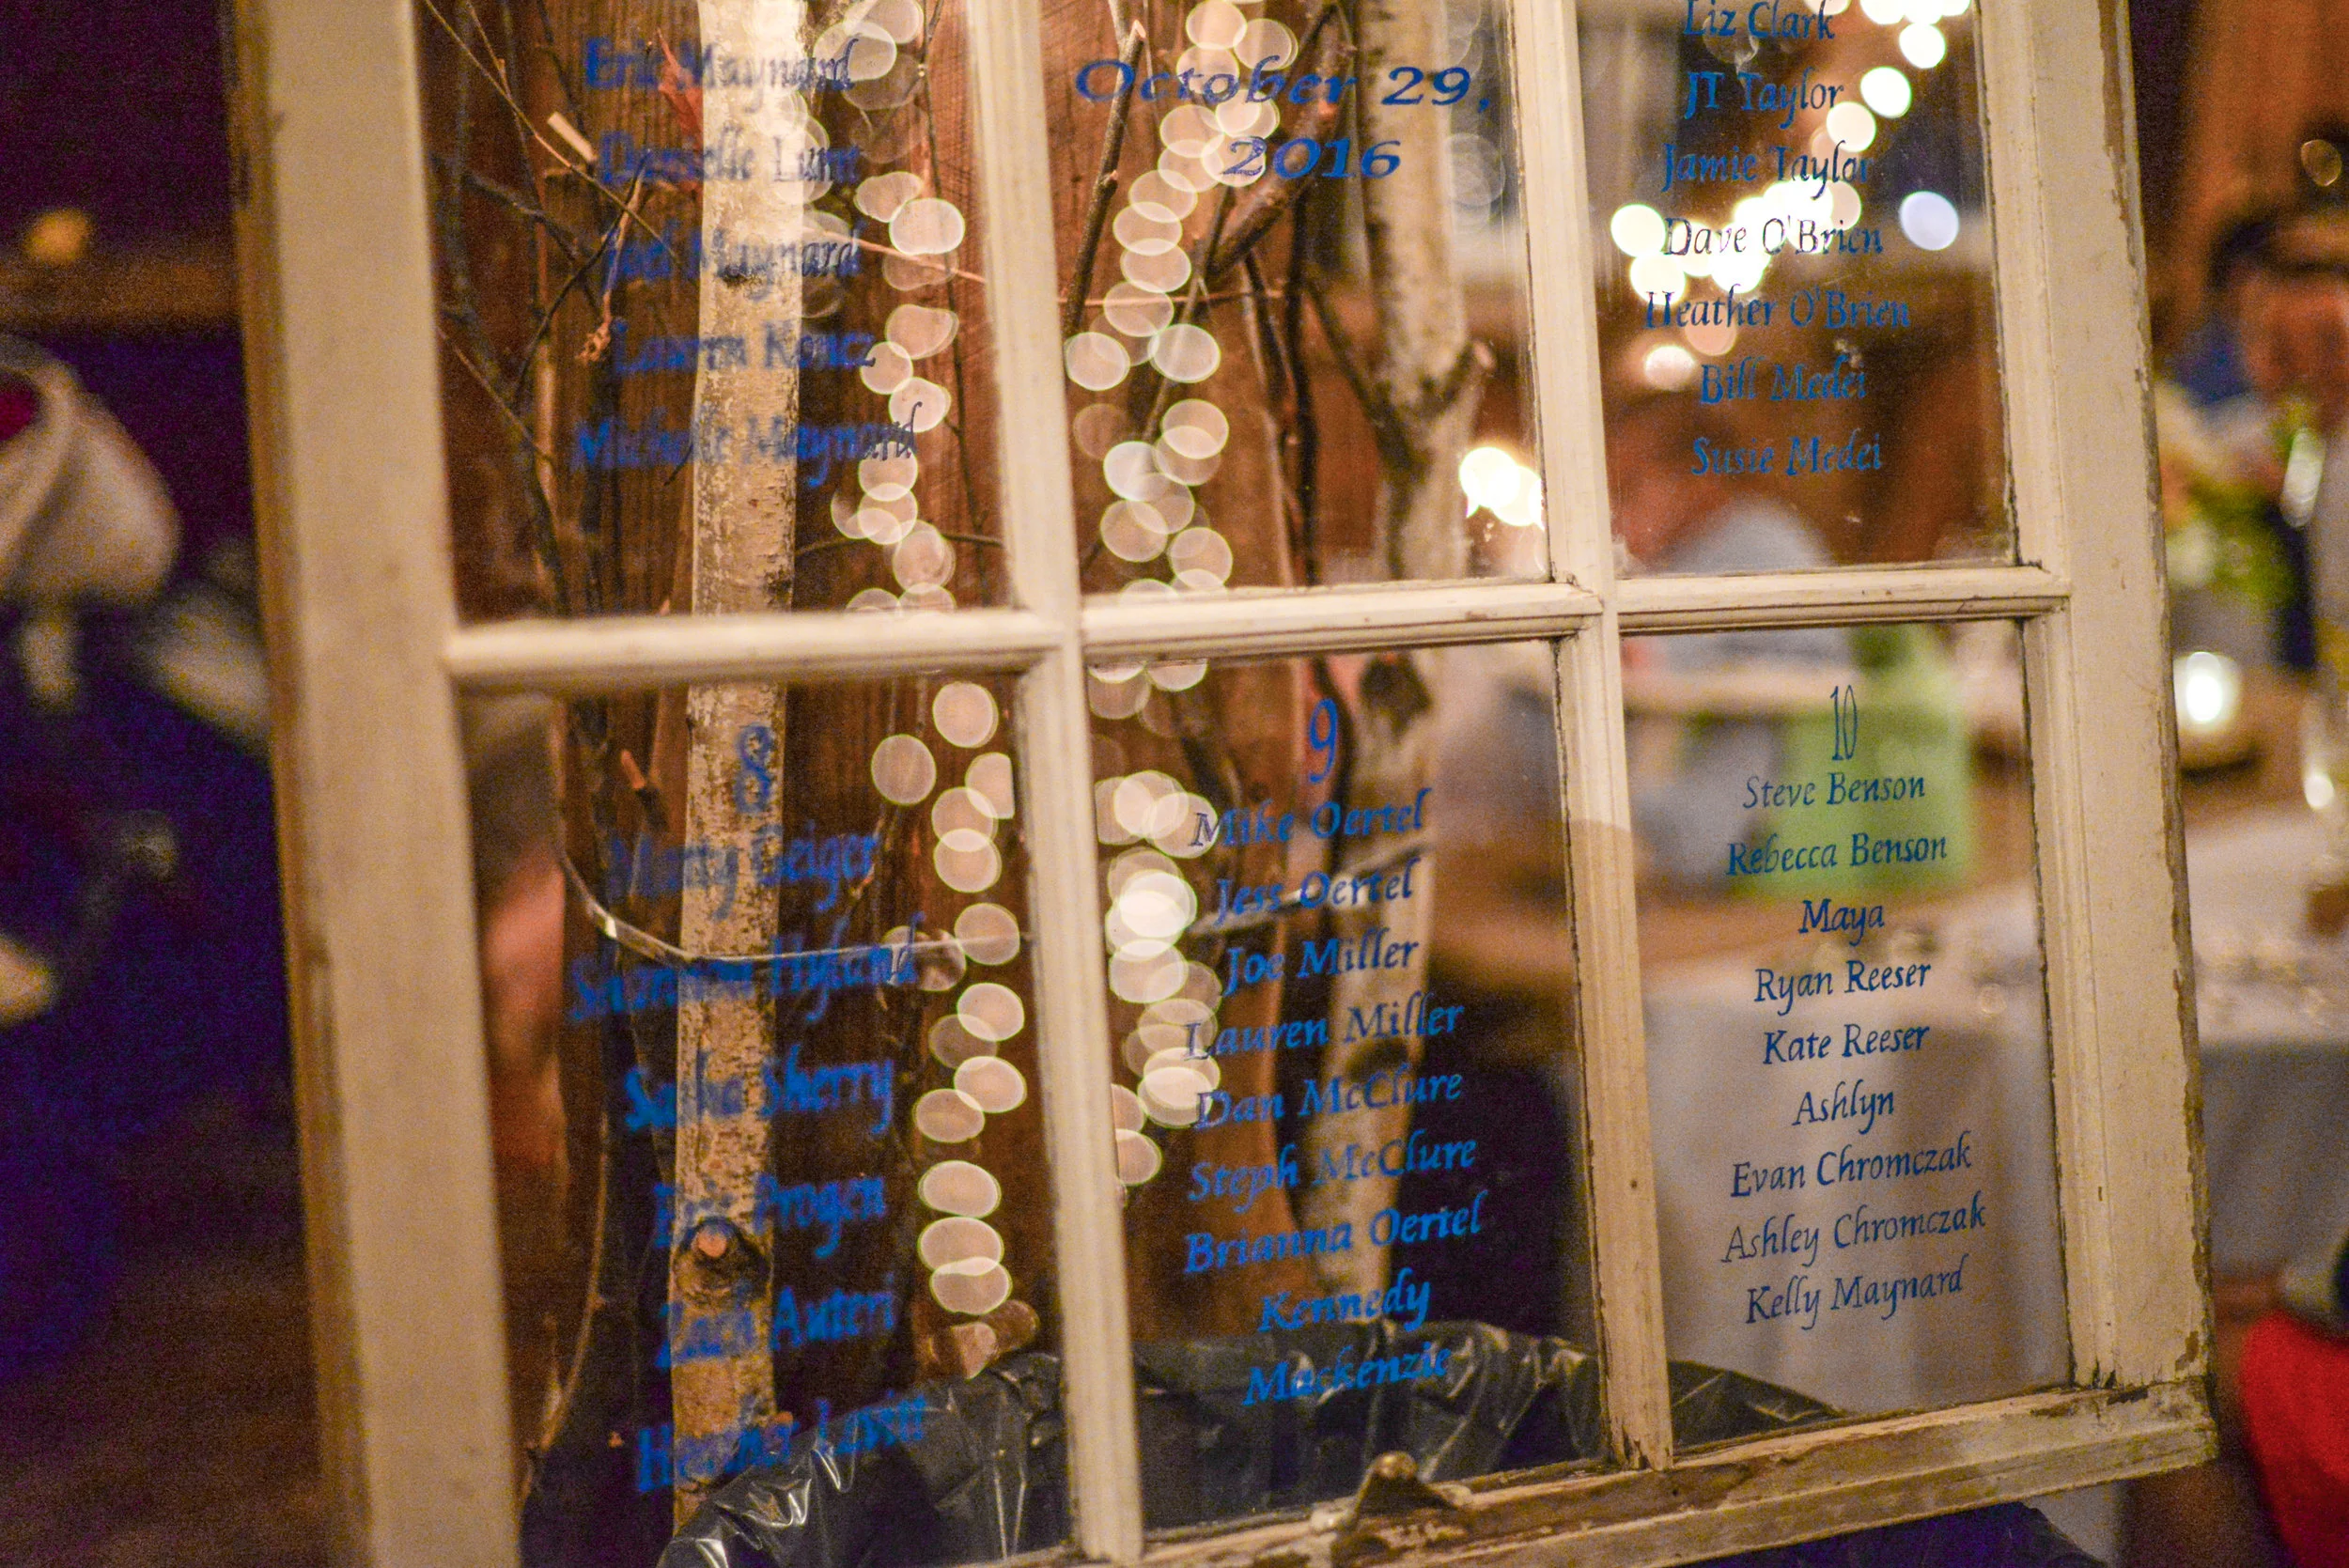 Eric Maynard
Danielle Lunn
Joel Maynard
Lauren Koncz
Michelle Maynard
October 29,
2016
Liz Clark
JT Taylor
Jamie Taylor
Dave O'Brien
Heather O'Brien
Bill Medei
Susie Medei
8
Geiger
Shannon Hyland
Sasha Sherry
Eric Progen
Zach Auteri
Heather Lavitt
9
Mike Oertel
Jess Oertel
Joe Miller
Lauren Miller
Dan McClure
Steph McClure
Brianna Oertel
Kennedy
Mackenzie
10
Steve Benson
Rebecca Benson
Maya
Ryan Reeser
Kate Reeser
Ashlyn
Evan Chromczak
Ashley Chromczak
Kelly Maynard